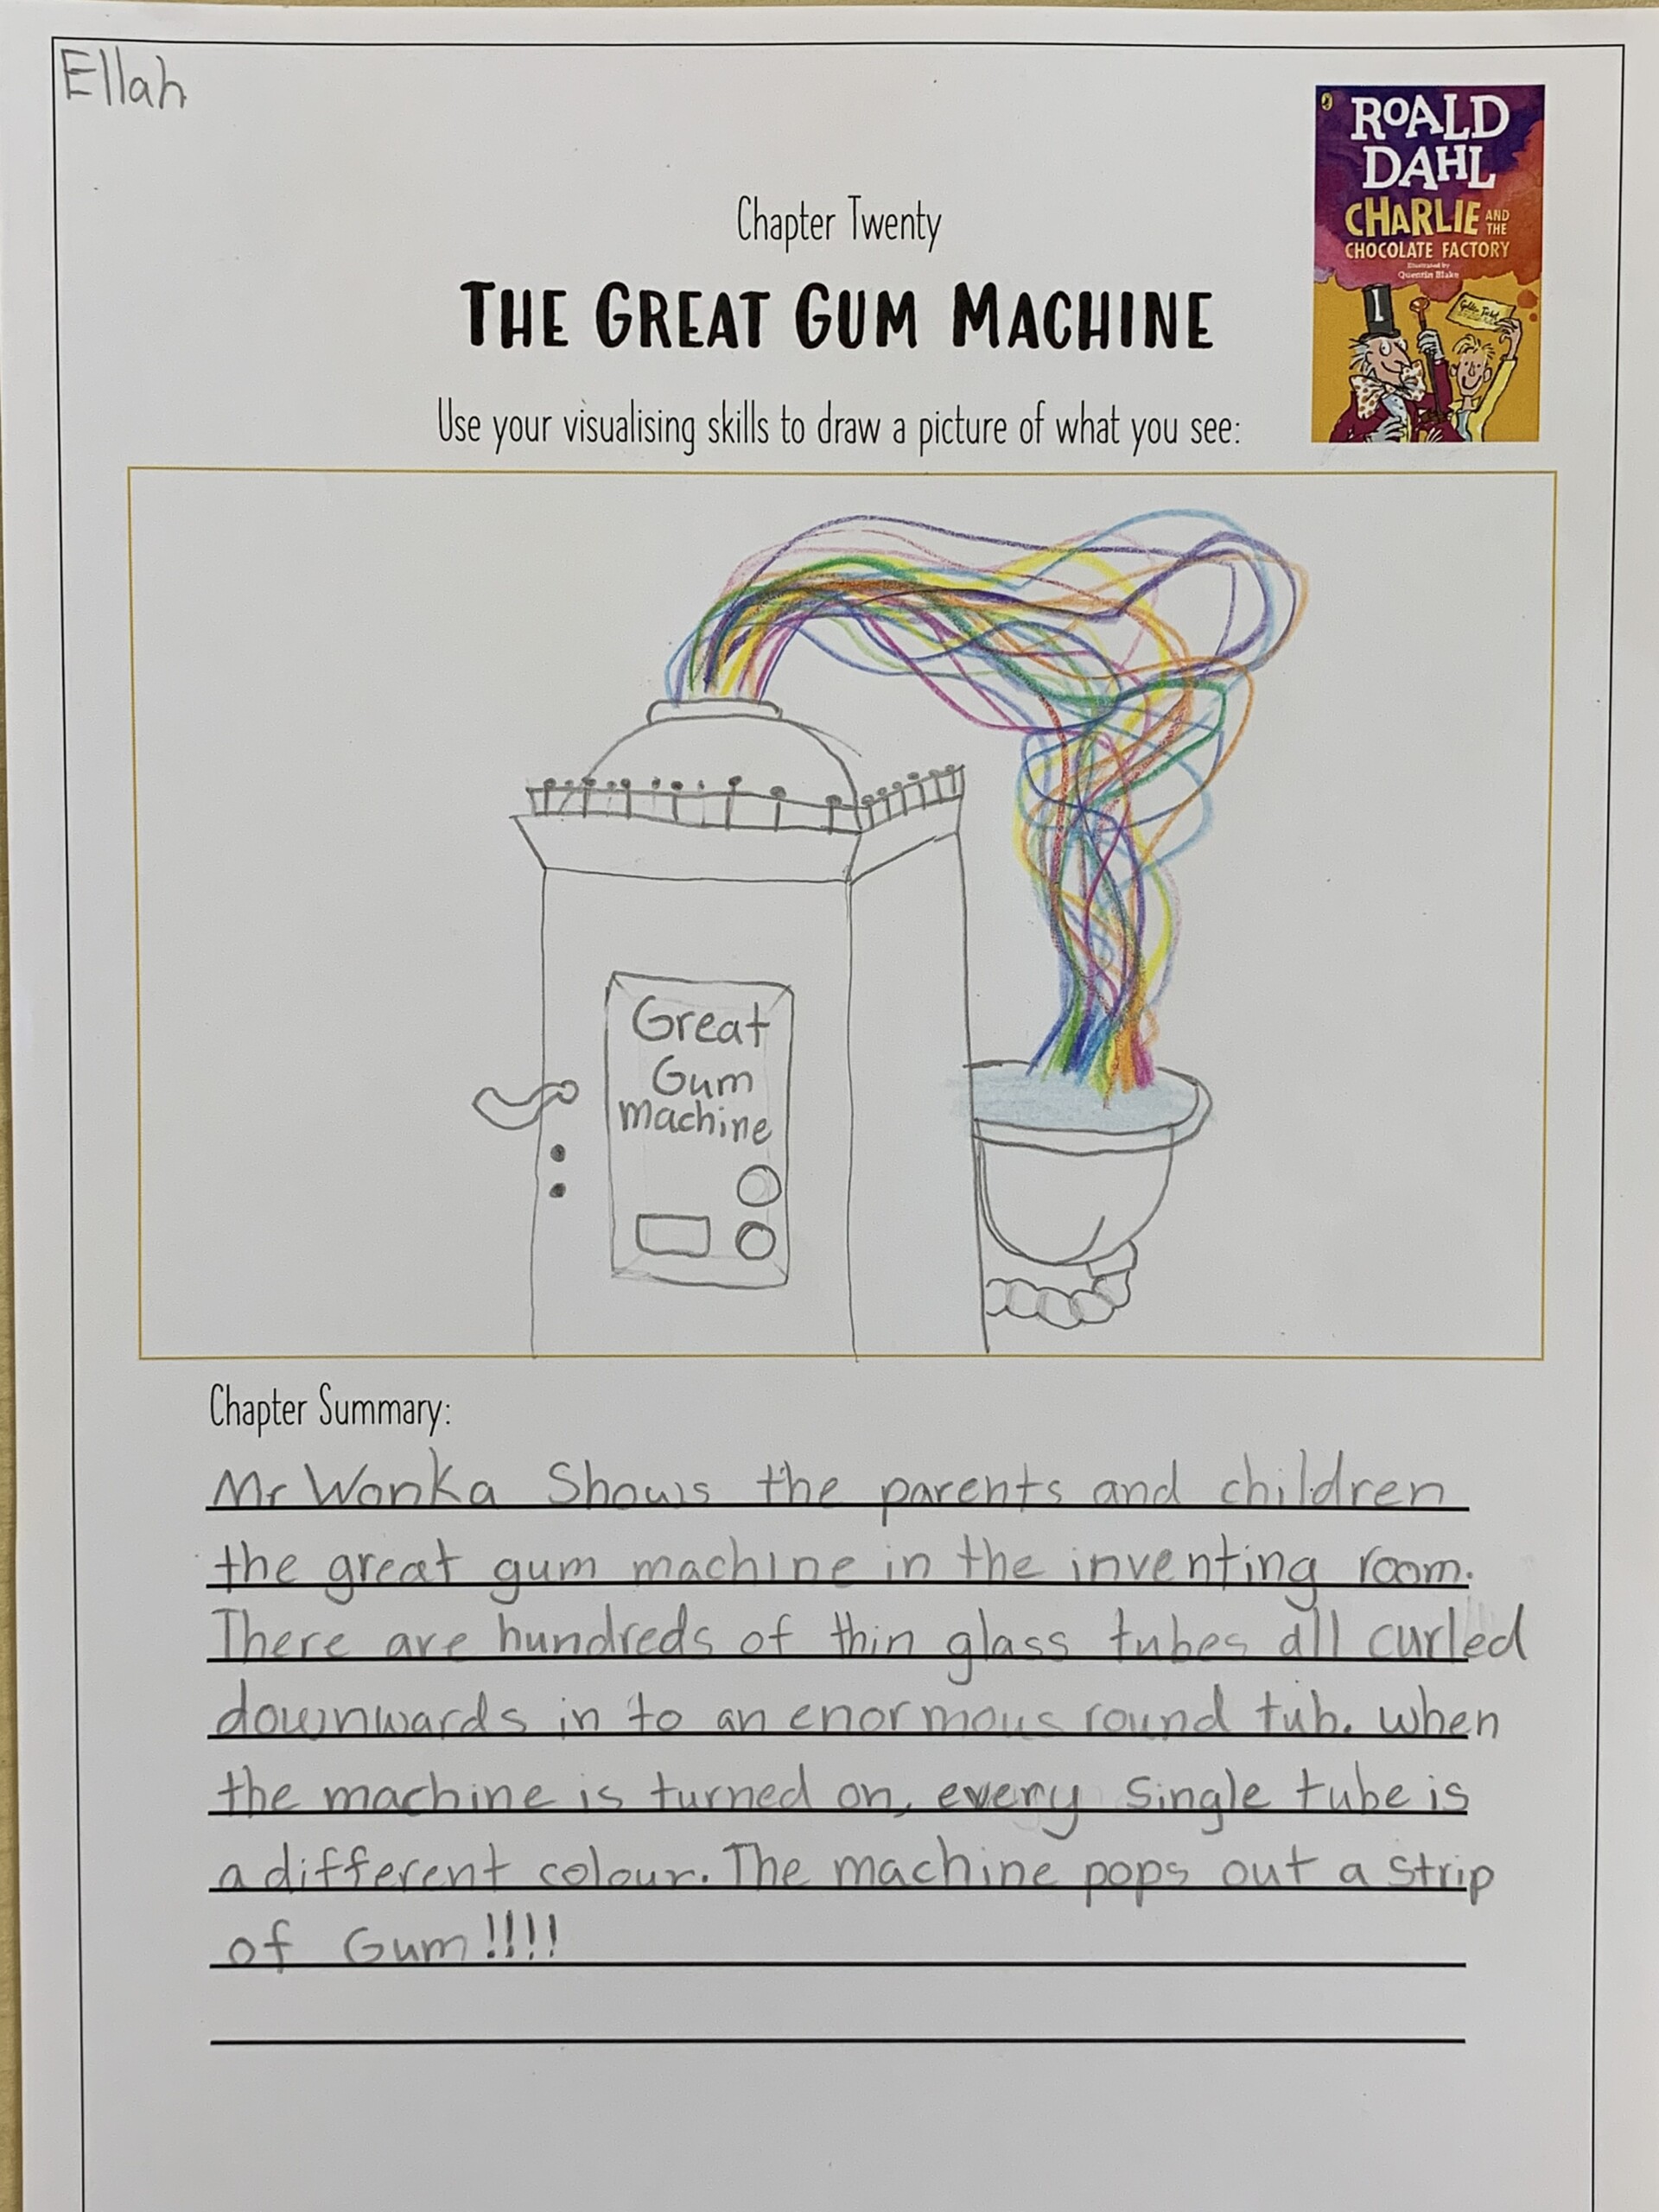 Ellah
ROALD
DAHL
CHARLIE AND
THE
CHOCOLATE FACTORY
Illustrated by
Quentin Blake
Golden Ticket
Chapter Twenty
THE GREAT GUM MACHINE
Use your visualising skills to draw a picture of what you see:
Great
Gum
machine
Chapter Summary:
Mr Wonka Shows the parents and children
the great gum machine in the inventing room.
There are hundreds of thin glass tubes all curled
downwards in to an enormous round tub. when
the machine is turned on, every single tube is
a different colour. The machine pops out a strip
of Gum!!!!